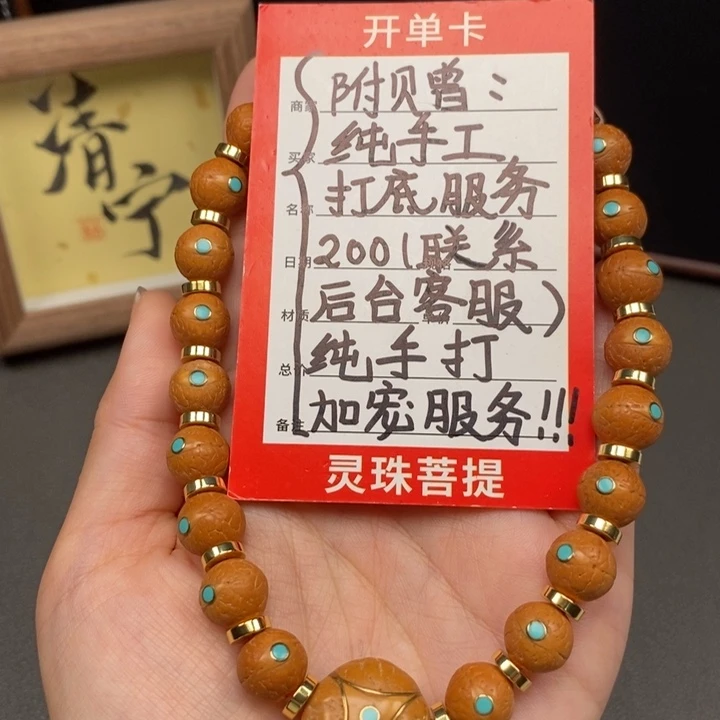 开单卡
商家 附贝曾:
买家 纯手工
名称 打底服务
日期 200(联系
材质 后台客服)
总价 纯手打
备注 加宏服务!!!
灵珠菩提
清宁